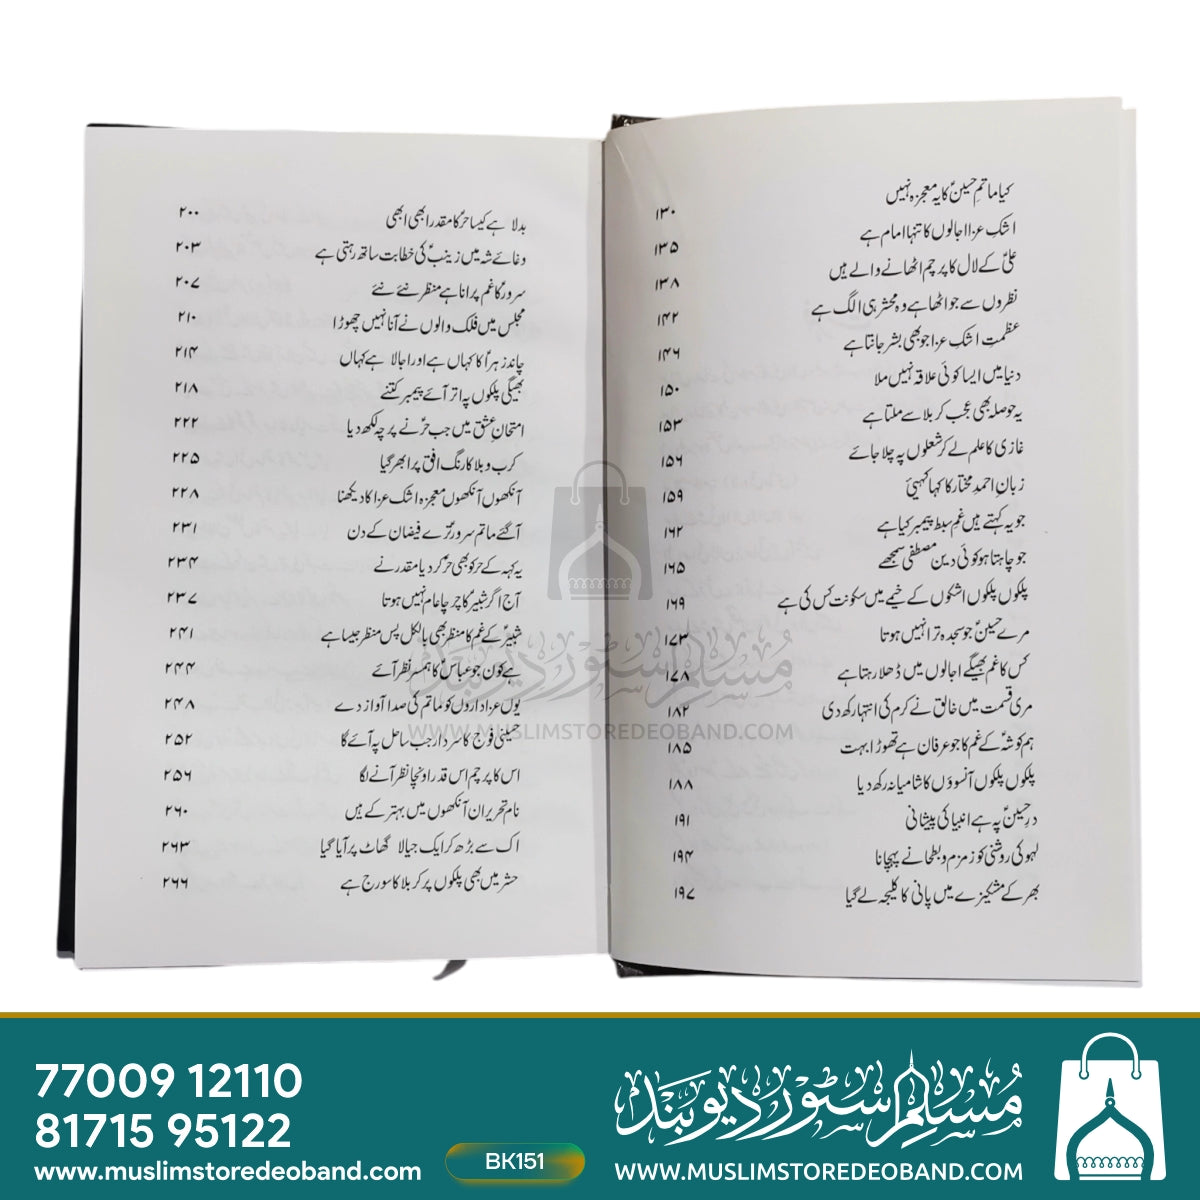 کیا ماتمِ حسینؑ کا یہ معجزہ نہیں ۱۳۰
اشکِ عزا اجالوں کا تنہا امام ہے ۱۳۵
علیؑ کے لال کا پرچم اٹھانے والے ہیں ۱۳۸
نظروں سے جو اٹھا ہے وہ محشر ہی الگ ہے ۱۴۲
عظمتِ اشکِ عزا جو بھی بشر جانتا ہے ۱۴۶
دنیا میں ایسا کوئی علاقہ نہیں ملا ۱۵۰
یہ حوصلہ بھی عجب کربلا سے ملتا ہے ۱۵۳
غازی کا علم لے کر شعلوں پہ چلا جائے ۱۵۶
زبانِ احمدِ مختار کا کہا کہیئے ۱۵۹
جو یہ کہتے ہیں غمِ سبطِ پیمبر کیا ہے ۱۶۲
جو چاہتا ہو کوئی دینِ مصطفٰی سمجھے ۱۶۵
پلکوں پلکوں اشکوں کے خیمے میں سکونت کس کی ہے ۱۶۹
مرے حسینؑ جو سجدہ ترا نہیں ہوتا ۱۷۳
کس کا غم بھیگے اجالوں میں ڈھلا رہتا ہے ۱۷۸
مری قسمت میں خالق نے کرم کی انتہا رکھ دی ۱۸۲
ہم کو شہؑ کے غم کا جو عرفان ہے تھوڑا بہت ۱۸۵
پلکوں پلکوں آنسوؤں کا شامیانہ رکھ دیا ۱۸۸
درِ حسینؑ پہ ہے انبیا کی پیشانی ۱۹۱
لہو کی روشنی کو زمزم و بطحا نے پہچانا ۱۹۴
بھر کے مشکیزے میں پانی کا کلیجہ لے گیا ۱۹۷
بدلا ہے کیسا حرؑ کا مقدر ابھی ابھی ۲۰۰
وغائے شہ میں زینبؑ کی خطابت ساتھ رہتی ہے ۲۰۳
سرورؑ کا غم پرانا ہے منظر نئے نئے ۲۰۷
مجلس میں فلک والوں نے آنا نہیں چھوڑا ۲۱۰
چاند زہراؑ کا کہاں ہے اور اجالا ہے کہاں ۲۱۴
بھیگی پلکوں پہ اتر آئے پیمبر کتنے ۲۱۸
امتحانِ عشق میں جب حرؑ نے پرچہ لکھ دیا ۲۲۲
کرب و بلا کا رنگ افق پر ابھر گیا ۲۲۵
آنکھوں آنکھوں معجزہ اشکِ عزا کا دیکھنا ۲۲۸
آگئے ماتمِ سرورؑ ترے فیضان کے دن ۲۳۱
یہ کہہ کے حر کو بھی حرؑ کر دیا مقدر نے ۲۳۴
آج اگر شبیرؑ کا چرچا عام نہیں ہوتا ۲۳۷
شبیرؑ کے غم کا منظر بھی بالکل پس منظر جیسا ہے ۲۴۱
ہے کون جو عباسؑ کا ہمسر نظر آئے ۲۴۴
یوں عزاداروں کو ماتم کی صدا آواز دے ۲۴۸
حسینی فوج کا سردار جب ساحل پہ آئے گا ۲۵۲
اس کا پرچم اس قدر اونچا نظر آنے لگا ۲۵۶
نام تحریر ان آنکھوں میں بہتر کے ہیں ۲۶۰
اک سے بڑھ کر ایک جیالا گھاٹ پر آیا گیا ۲۶۳
حشر میں بھی پلکوں پر کربلا کا سورج ہے ۲۶۶
مسلم سٹور دیوبند
WWW.MUSLIMSTOREDEOBAND.COM
77009 12110
81715 95122
www.muslimstoredeoband.com
BK151
مسلم سٹور دیوبند
WWW.MUSLIMSTOREDEOBAND.COM